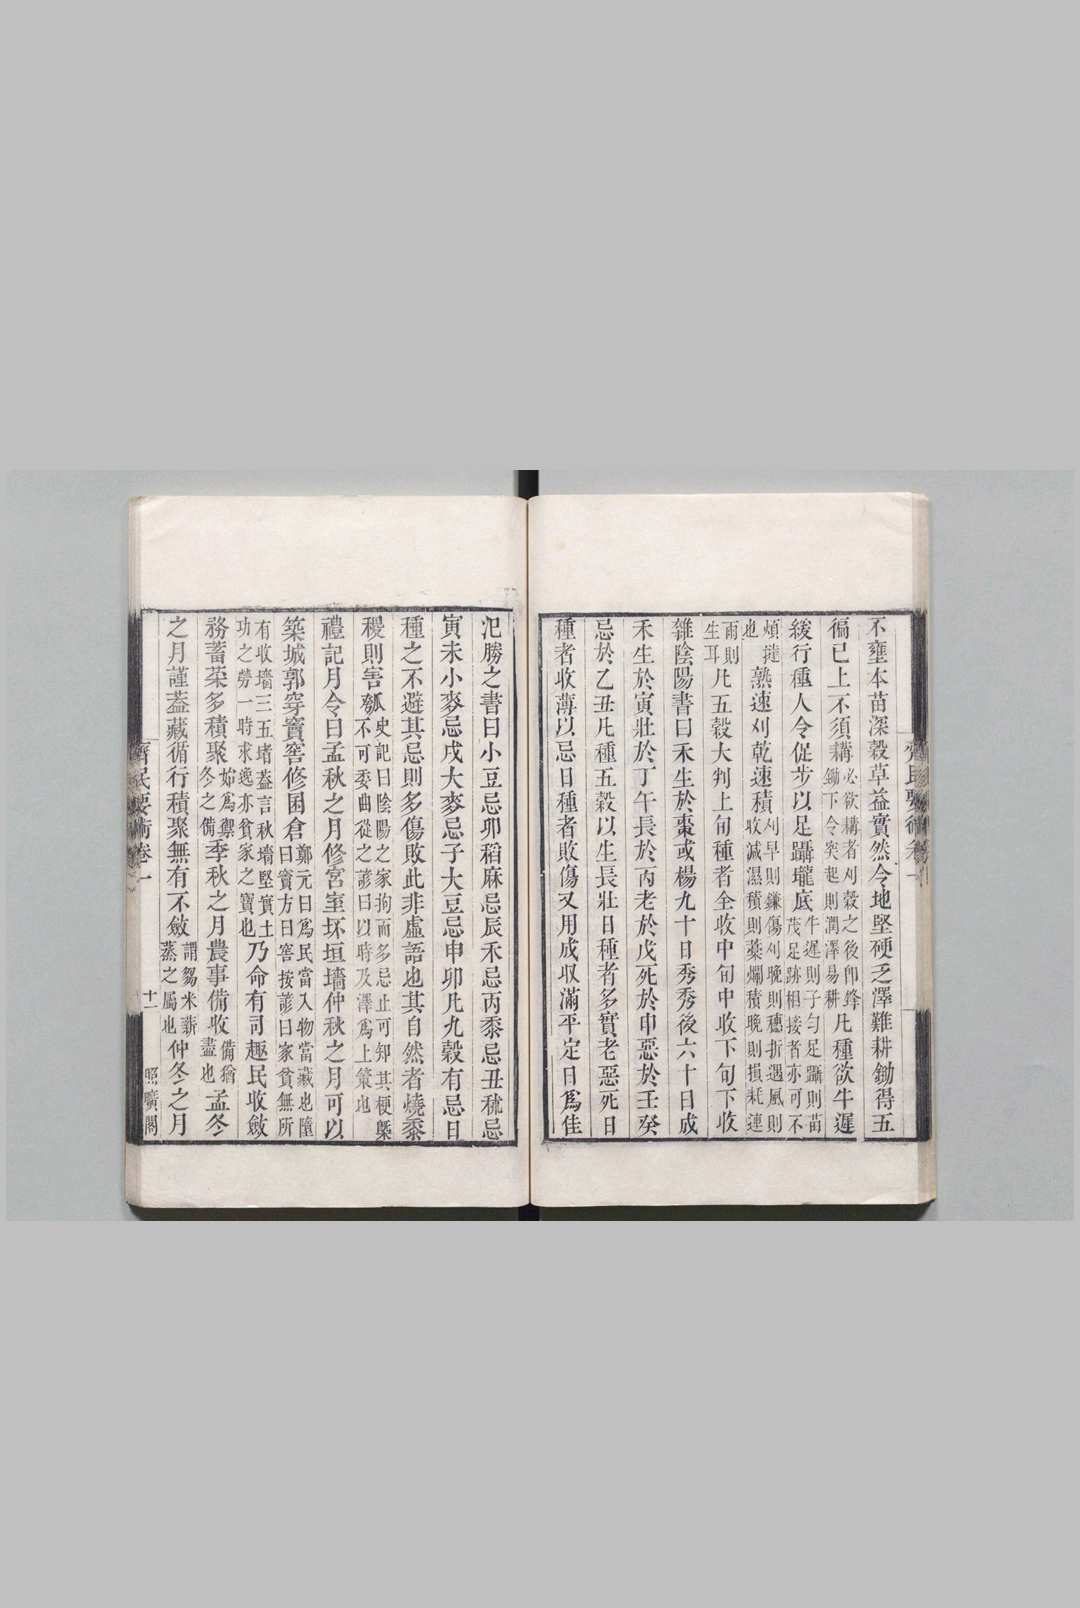 不壅本苗深穀草益實然令地堅硬乏澤難耕鋤得五
徧已上不須耩必欲耩者刈穀之後卽鋒鋤下令突起則潤澤易耕凡種欲牛遲
緩行種人令促步以足躡壠底牛遲則子勻足躡則苗茂足跡相接者亦可不
煩撻也熟速刈乾速積刈早則鎌傷刈晚則穗折遇風則收減濕積則藁爛積晚則損耗連
雨則生耳凡五穀大判上旬種者全收中旬中收下旬下收
雜陰陽書曰禾生於棗或楊九十日秀秀後六十日成
禾生於寅壯於丁午長於丙老於戊死於申惡於壬癸
忌於乙丑凡種五穀以生長壯日種者多實老惡死日
種者收薄以忌日種者敗傷又用成收滿平定日爲佳
氾勝之書曰小豆忌卯稻麻忌辰禾忌丙黍忌丑秫忌
寅未小麥忌戌大麥忌子大豆忌申卯凡九穀有忌日
種之不避其忌則多傷敗此非虛語也其自然者燒黍
穣則害瓠史記曰陰陽之家拘而多忌止可知其梗槩不可委曲從之諺曰以時及澤爲上策也
禮記月令曰孟秋之月修宮室坏垣墻仲秋之月可以
築城郭穿竇窖修囷倉鄭元曰爲民當入物當藏也隋曰竇方曰窖按諺曰家貧無所
有收墻三五堵葢言秋墻堅實土功之勞一時求逸亦貧家之寶也乃命有司趣民收斂
務蓄菜多積聚始爲禦冬之備季秋之月農事備收備猶盡也孟冬
之月謹葢藏循行積聚無有不斂謂芻禾薪蒸之屬也仲冬之月
齊民要術卷一
十一
照曠閣